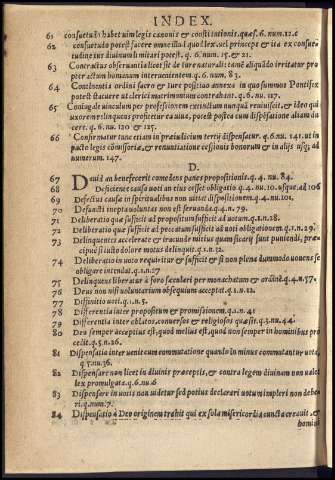 INDEX.
61 consuetudo habet uim legis canonis & constitutionis. quæs. 6. num. 12. c
62 consuetudo potest facere omne illud quod lex. uel princeps & ita ex consue
tudine ius diuinum limitari potest. q. 6. num. 15. & 21.
63 Contractus obseruantia licet sit de iure naturali: tamē aliquādo irritatur pro
pter actum humanum interuenientem. q. 6 num. 83.
64 Continentia ordini sacro & iure positiuo annexa in quo summus Pontifex
potest facere ut clerici matrimonium contrahant. q. 6. nu. 117.
65 Coniugale uinculum per professionem extinctum nunquā reuiuiscit, & ideo qui
uxorem relinquens profitetur ea uiua, potest postea cum dispensatione aliam du
cere. q. 6. nu. 120 & 125.
66 Confirmatur tunc etiam in præiudicium tertij dispensatur. q. 6. nu. 141. ut in
pacto legis cōmissoria, & renuntiatione cessionis bonorum & in alijs usq; ad
numerum. 147.
D.
67 Dauid an benefecerit comedens panes propositionis. q. 4. nu. 84.
68 Deficiente causa uoti an eius cesset obligatio q. 4. nu. 10. usque. ad 106
69 Defectus causa in spiritualibus non uitiat dispositionem. q. 4. nu. 101.
70 Defuncti inepta uoluntas non est seruanda. q. 4. n. 79.
71 Deliberatio quæ sufficit ad propositum sufficit ad uotum. q. 1. n. 28.
72 Deliberatio quæ sufficit ad peccatum sufficit ad uoti obligationem. q. 1. n. 29.
73 Delinquentes acceleratè & iracundè mitius quàm sicarij sunt puniendi, præ
cipuè si iusto dolore motus delinquit. q. 1. n. 32.
74 Deliberatio in uoto requiritur & sufficit & si non plena dummodo uouens se
obligare intendat. q. 1. n. 17
75 Delinquens liberatur à foro sæculari per monachatum & ordinē. q. 4. n. 57.
76 Deus non nisi uoluntarium obsequium acceptat. q. 1. n. 12.
77 Diffinitio uoti. q. 1. n. 5.
78 Differentia inter propositum & promissionem. q. 1. n. 41
79 Differentia inter oblatos, conuersos & religiosos quæst. q. 3. nu. 44.
80 Deo semper acceptius est, quod melius est, quod non semper in hominibus pro
cedit. q. 5. n. 26.
81 Dispensatio interuenit cum commutatione quando in minus commutantur uota,
q. 5. nu. 36.
82 Dispensare non licet in diuinis præceptis, & contra legem diuinam non ualet
lex promulgata. q. 6. nu. 6
83 Dispensare in uotis non uidetur sed potius declarari uotum impleri non debe
ri. q. num. 7.
84 Dispensatio à Deo originem trahit qui ex sola misericordia cuncta creauit, &
homini